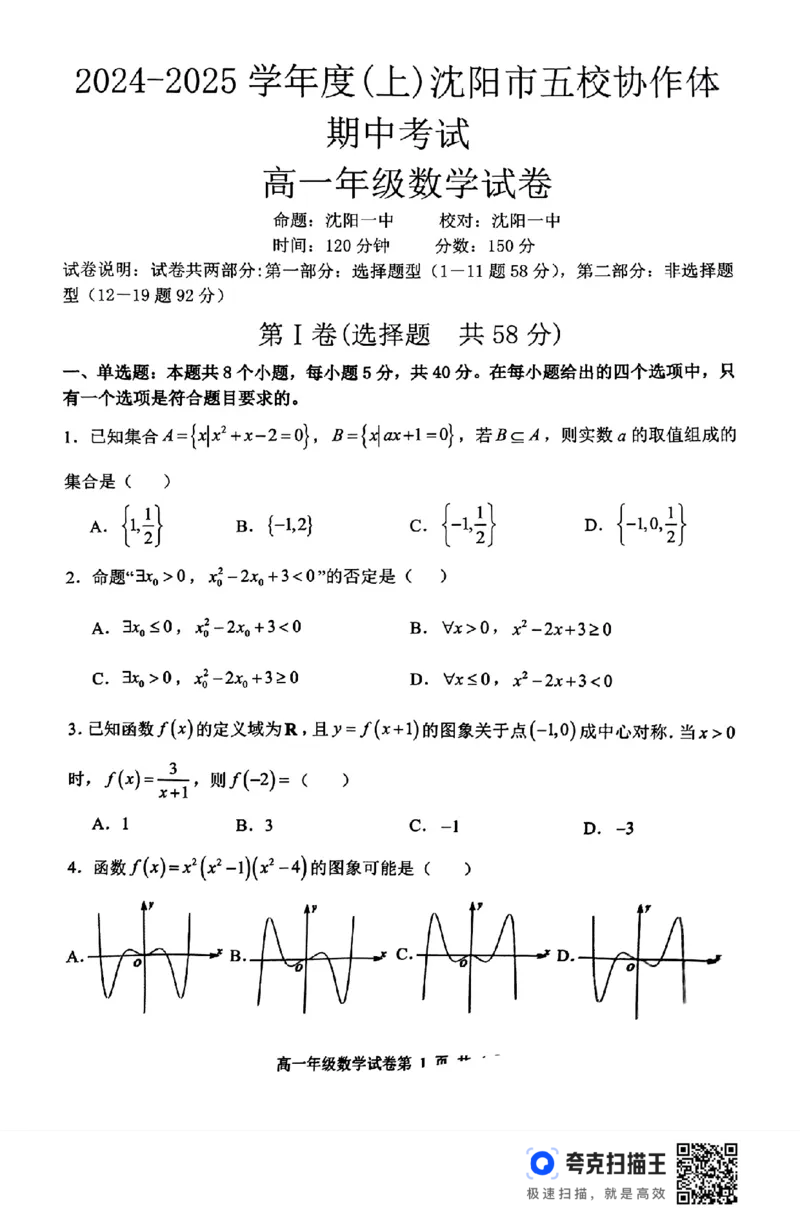 2024-2025 学年度(上)沈阳市五校协作体
期中考试
高一年级数学试卷
命题：沈阳一中　　校对：沈阳一中
时间：120 分钟　　分数：150 分
试卷说明：试卷共两部分:第一部分：选择题型（1－11 题 58 分），第二部分：非选择题
型（12－19 题 92 分）
第 Ⅰ 卷(选择题　共 58 分)
一、单选题：本题共 8 个小题，每小题 5 分，共 40 分。在每小题给出的四个选项中，只
有一个选项是符合题目要求的。
1．已知集合 A={x|x²+x−2=0}，B={x|ax+1=0}，若 B⊆A，则实数 a 的取值组成的
集合是（　　）
A．{1,1/2}　　B．{−1,2}　　C．{−1,1/2}　　D．{−1,0,1/2}
2．命题“∃x₀>0，x₀²−2x₀+3<0”的否定是（　　）
A．∃x₀≤0，x₀²−2x₀+3<0　　B．∀x>0，x²−2x+3≥0
C．∃x₀>0，x₀²−2x₀+3≥0　　D．∀x≤0，x²−2x+3<0
3.已知函数 f(x) 的定义域为 R，且 y=f(x+1) 的图象关于点(−1,0)成中心对称．当 x>0
时，f(x)=3/(x+1)，则 f(−2)=（　　）
A．1　　B．3　　C．−1　　D．−3
4．函数 f(x)=x²(x²−1)(x²−4) 的图象可能是（　　）
A.　y　x　O　B.　y　x　O　C.　y　x　O　D.　y　x　O
高一年级数学试卷第 1 页
夸克扫描王
极速扫描，就是高效